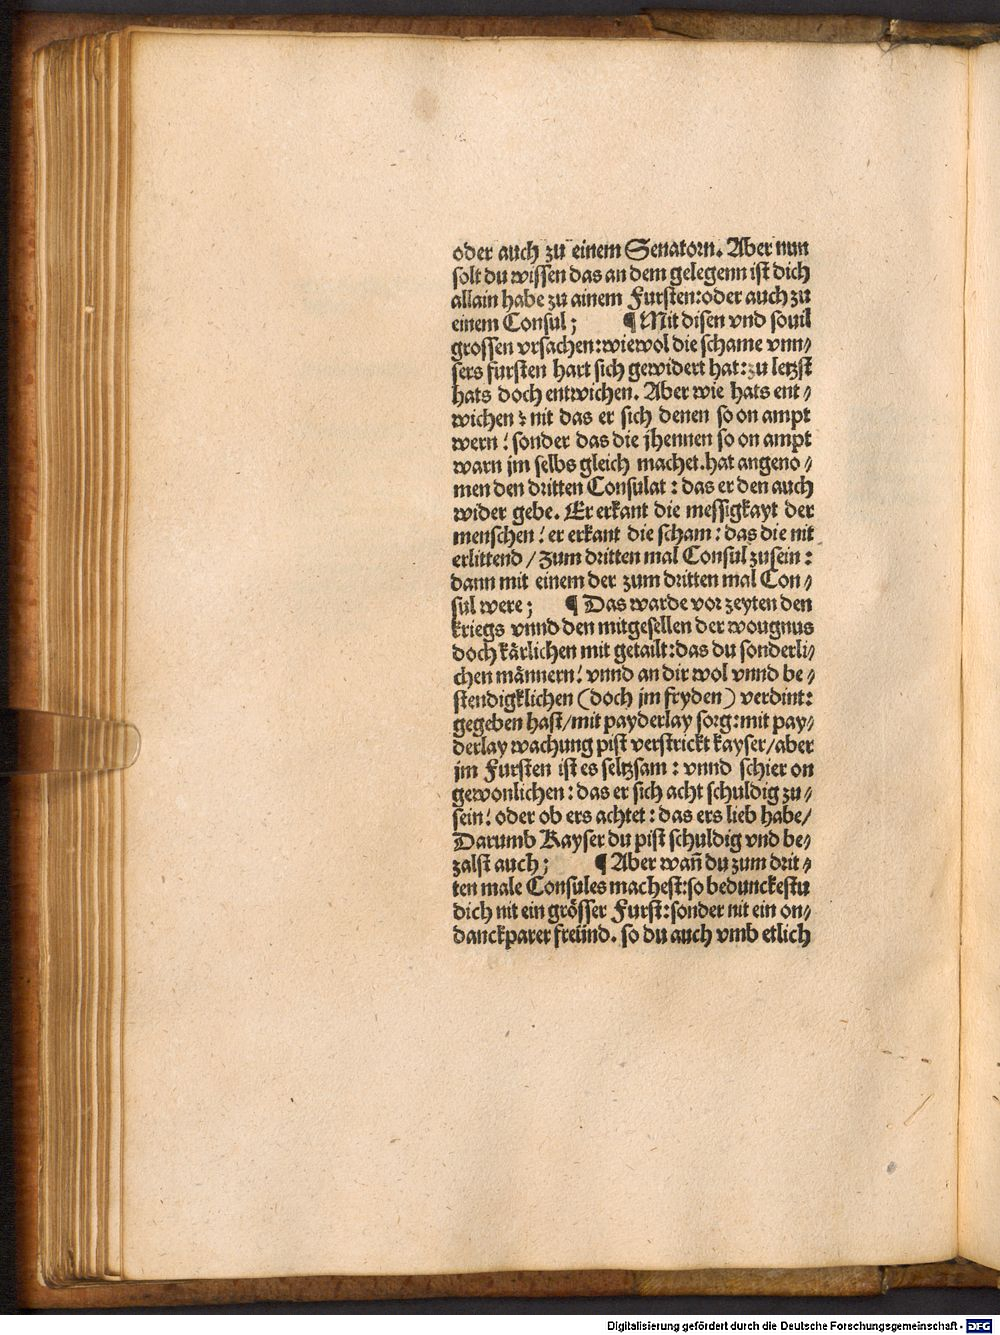 oder auch zu einem Senatorn. Aber nun
solt du wissen das an dem gelegenn ist dich
allain habe zu ainem Fursten: oder auch zu
einem Consul; ¶ Mit disen vnd souil
grossen vrsachen: wiewol die schame vnn⸗
sers fursten hart sich gewidert hat: zu letzst
hats doch entwichen. Aber wie hats ent⸗
wichen? nit das er sich denen so on ampt
wern! sonder das die jhennen so on ampt
warn jm selbs gleich machet. hat angeno⸗
men den dritten Consulat: das er den auch
wider gebe. Er erkant die messigkayt der
menschen! er erkant die scham: das die nit
erlittend / Zum dritten mal Consul zusein:
dann mit einem der zum dritten mal Con⸗
sul were; ¶ Das warde vor zeyten den
kriegs vnnd den mitgesellen der wougnus
doch kårlichen mit getailt: das du sonderli⸗
chen månnern! vnnd an dir wol vnnd be⸗
stendigklichen (doch jm fryden) verdint:
gegeben hast / mit payderlay sorg: mit pay⸗
derlay wachung pist verstrickt kayser / aber
jm Fursten ist es seltzsam: vnnd schier on
gewonlichen: das er sich acht schuldig zu⸗
sein! oder ob ers achtet: das ers lieb habe /
Darumb Kayser du pist schuldig vnd be⸗
zalst auch; ¶ Aber wañ du zum drit⸗
ten male Consules machest: so bedunckestu
dich nit ein grösser Furst: sonder nit ein on⸗
danckparer freünd. so du auch vmb etlich
Digitalisierung gefördert durch die Deutsche Forschungsgemeinschaft - DFG